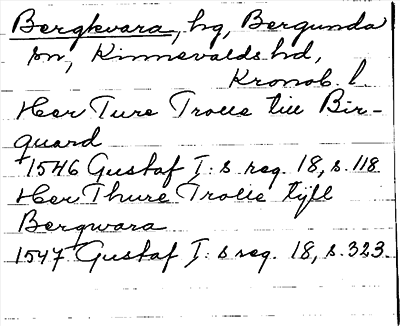 Bergkvara, hg, Bergunda
sn, Kinnevalds hd,
Kronob. l.
Her Ture Trolle till Bir-
quard
1546 Gustaf I:s reg. 18, s. 118
Her Thure Trolle tijll
Bergwara
1547 Gustaf I:s reg. 18, s. 323.